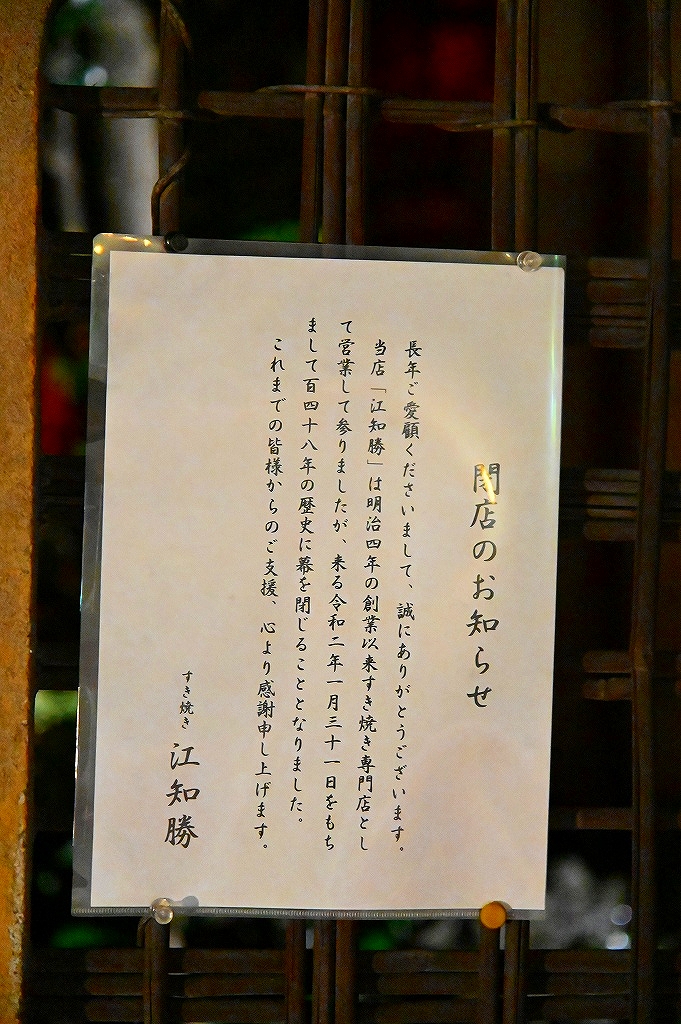 閉店のお知らせ
長年ご愛顧くださいまして、誠にありがとうございます。
当店「江知勝」は明治四年の創業以来すき焼き専門店とし
て営業して参りましたが、来る令和二年一月三十一日をもち
まして百四十八年の歴史に幕を閉じることとなりました。
これまでの皆様からのご支援、心より感謝申し上げます。
すき焼き 江知勝